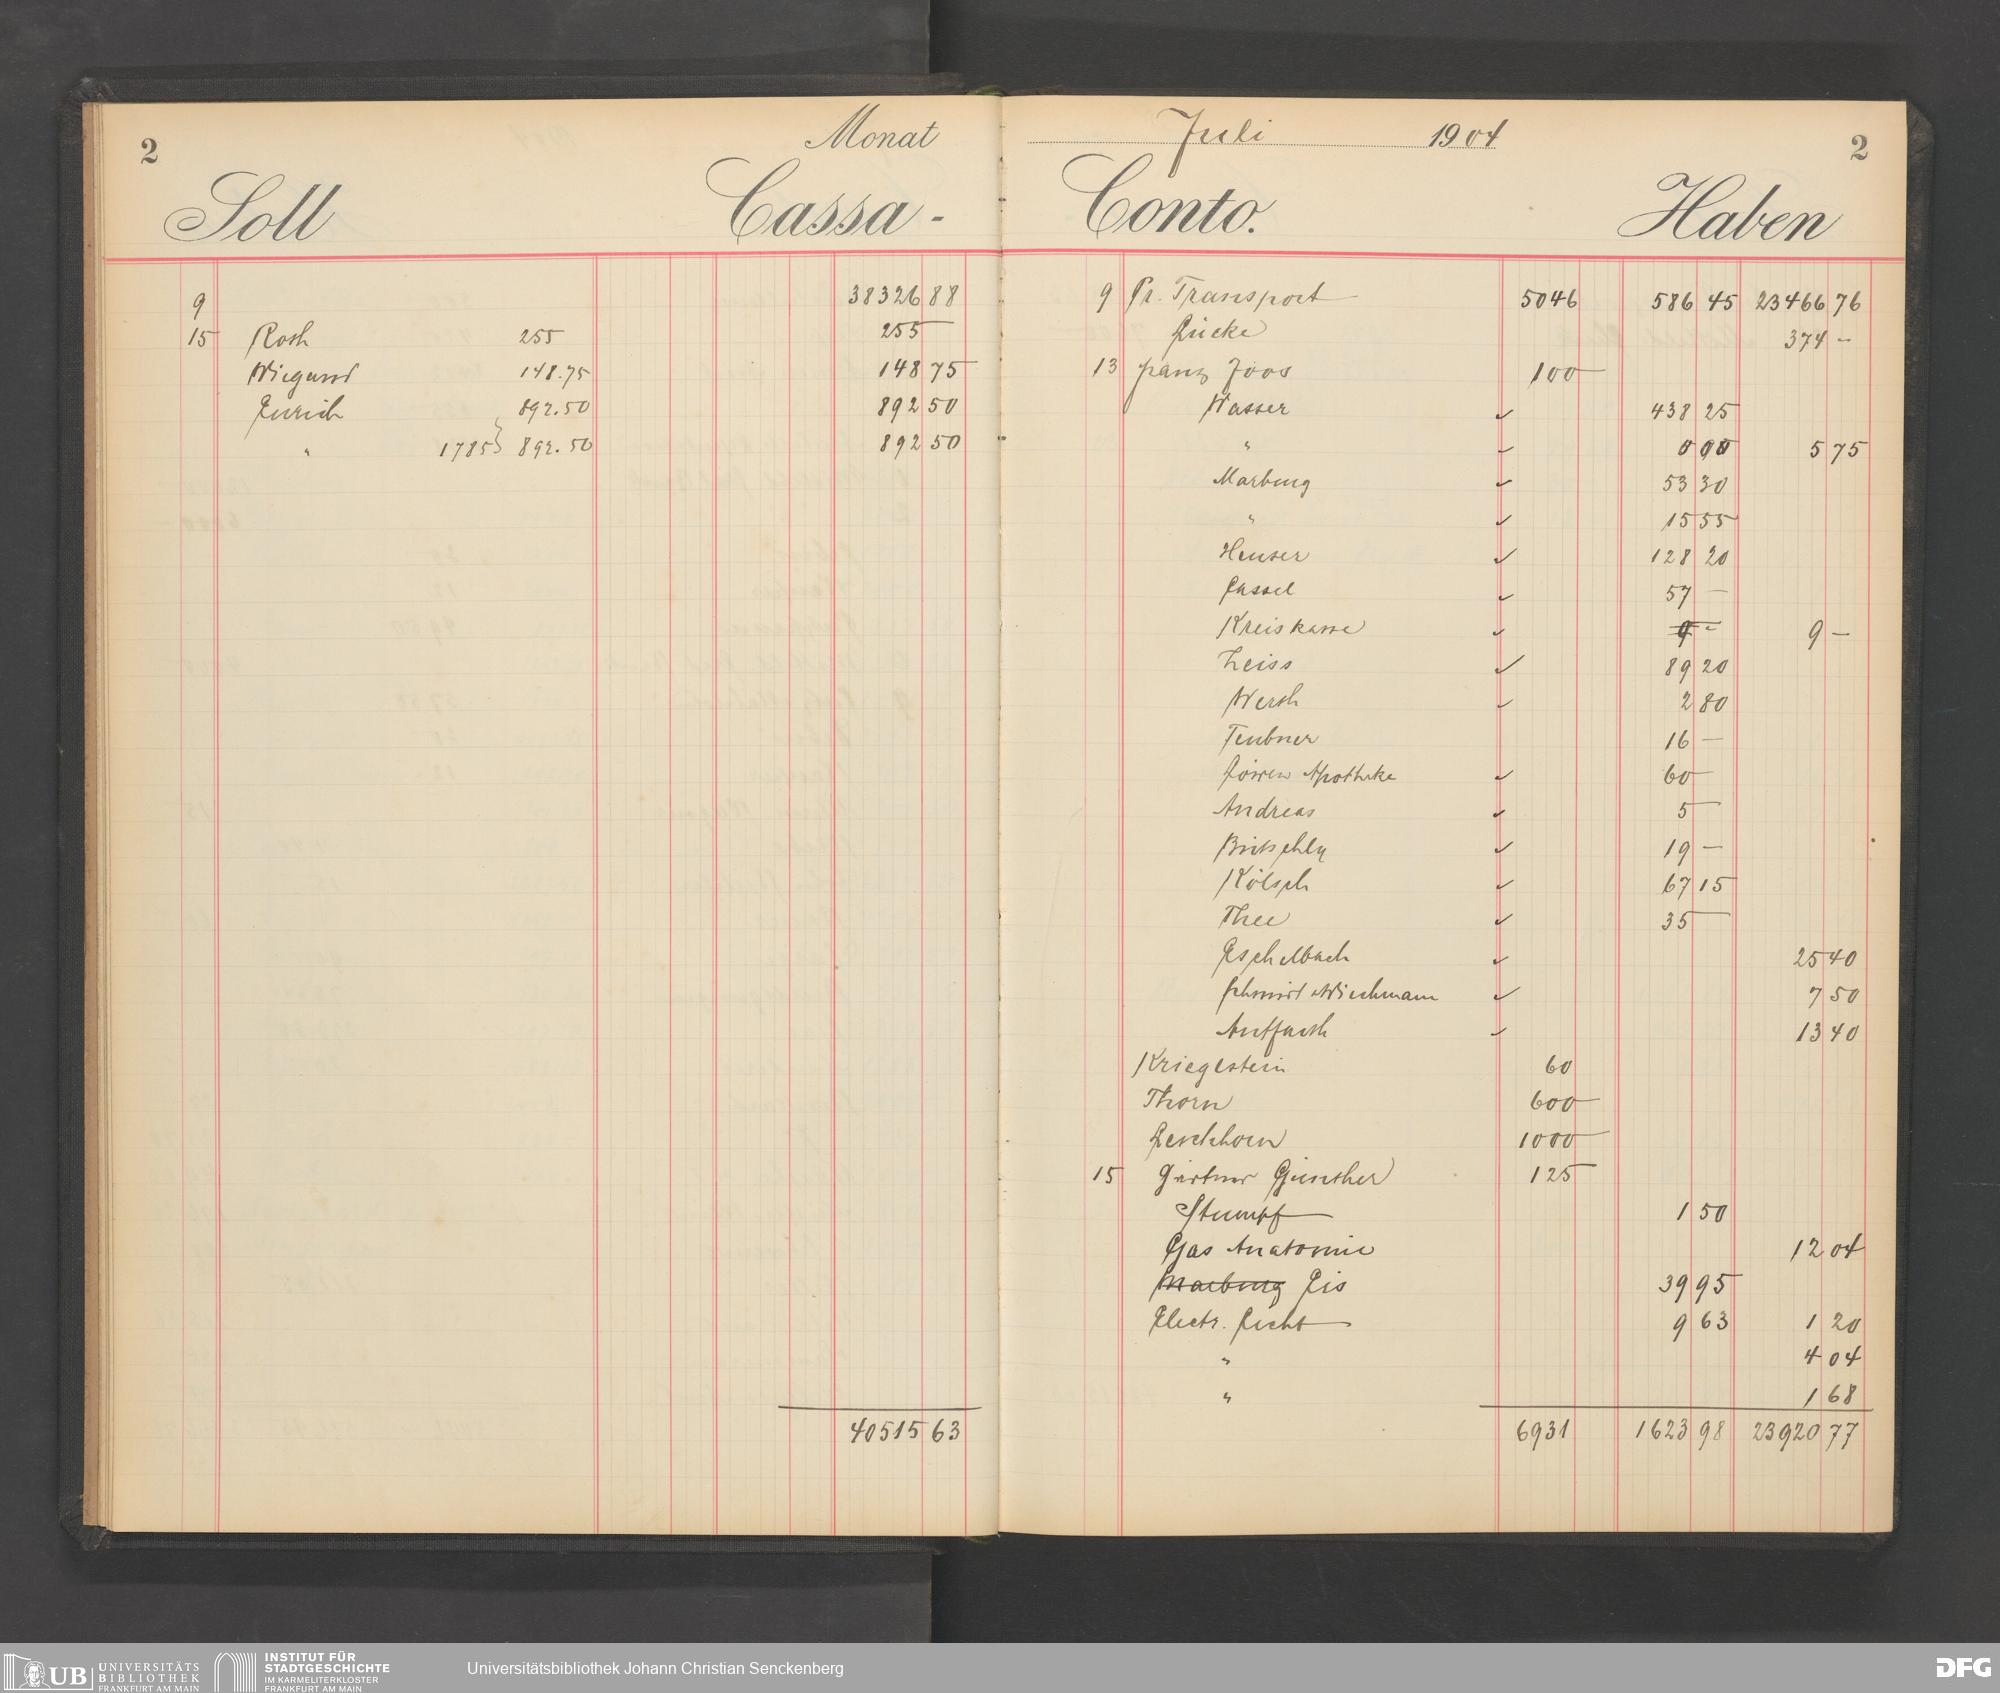 2
Monat
Soll
Cassa-
9 38326 88
15 Roth 255 255
Wiegand 148.75 148 75
Zurich 892.50 892 50
" 1785 } 892.50 892 50
40515 63
Juli 1904
2
Conto.
Haben
9 Pr. Transport 5046 586 45 23466 76
Lücke 374 -
13 Franz Joos 100
Wasser ✓ 438 25
" ✓ 5 75
Marburg ✓ 53 30
" ✓ 15 55
Heuser ✓ 128 20
Cassel ✓ 57 -
Kreiskasse ✓ 9 - 9 -
Zeiss ✓ 89 20
Werth ✓ 2 80
Teubner 16 -
Löwen Apotheke ✓ 60
Andreas ✓ 5
Bütschly ✓ 19 -
Kölsch ✓ 67 15
Thee ✓ 35
Eschelbach ✓ 25 40
Schmidt Wiechmann ✓ 7 50
Auffarth ✓ 13 40
Krieglstein 60
Thorn 600
Lerchhorn 1000
15 Gärtner Günther 125
Stumpf 1 50
Gas Anatomie 12 04
Marburg Eis 39 95
Electr. Licht 9 63 1 20
" 4 04
" 1 68
6931 1623 98 23920 77
UB UNIVERSITÄTS
BIBLIOTHEK
FRANKFURT AM MAIN
INSTITUT FÜR
STADTGESCHICHTE
IM KARMELITERKLOSTER
FRANKFURT AM MAIN
Universitätsbibliothek Johann Christian Senckenberg
DFG